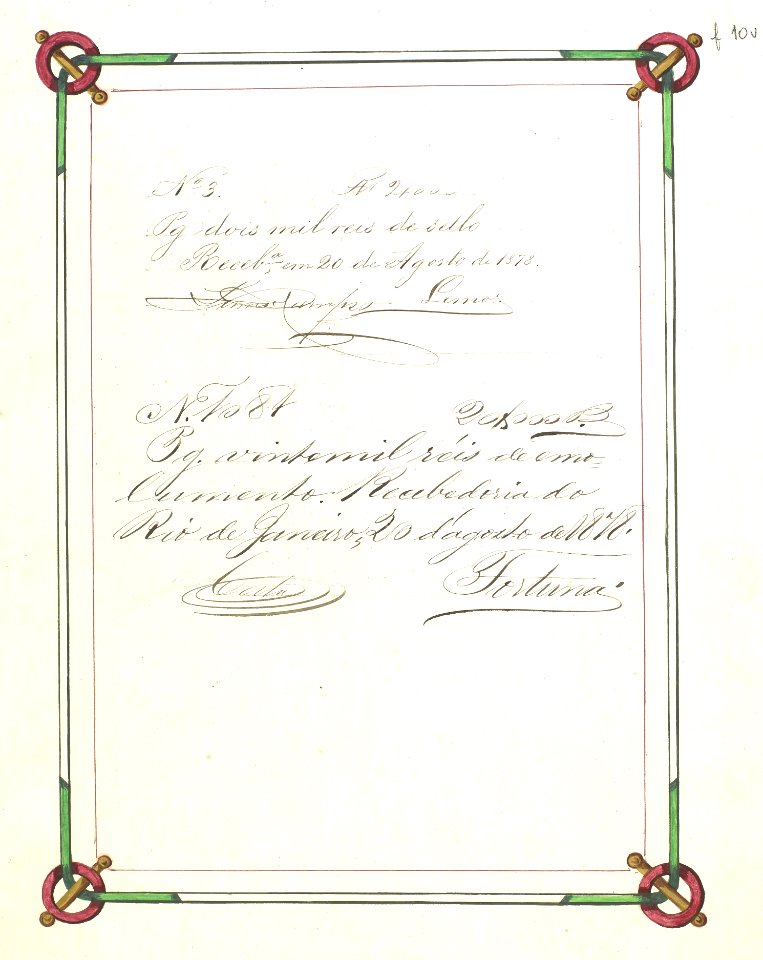 f 10v
Nº 3. Rs 2,000
Pg dois mil reis de sello
Receb.ª, em 20 de Agosto de 1878.
Lemos
20$000 R.
Pg. vinte mil réis de emo=
lumento. Recebedoria do
Rio de Janeiro, 20 d'agosto de 1878.
Fortuna